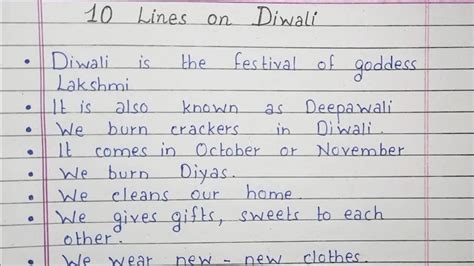 10 Lines on Diwali
• Diwali is the festival of goddess
Lakshmi
• It is also known as Deepawali
• We burn crackers in Diwali.
• It comes in October or November
• We burn Diyas.
• We cleans our home.
• We gives gifts, sweets to each
other.
• We wear new - new clothes.